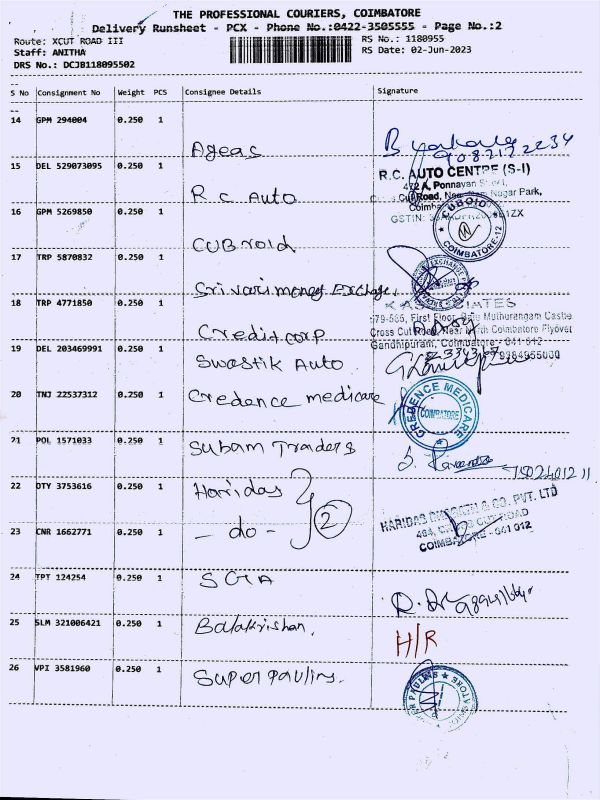 THE PROFESSIONAL COURIERS, COIMBATORE
Delivery Runsheet - PCX - Phone No.:0422-3505555 - Page No.:2
Route: XCUT ROAD III
RS No.: 1180955
Staff: ANITHA
RS Date: 02-Jun-2023
DRS No.: DCJB118095502
S No Consignment No Weight PCS Consignee Details Signature
14 GPM 294004 0.250 1
Ageas
15 DEL 529073095 0.250 1
R.C. AUTO CENTRE (S-I)
472 A, Ponnayan
R C Auto
Cut Road, Nagar Park,
16 GPM 5269850 0.250 1
CUBOID
COIMBATORE-12
CUBROID
17 TRP 5870832 0.250 1
EXCHANGE
Srivari money Exchange
18 TRP 4771850 0.250 1
579-585, First Floor, Muthurangam Castle
Credit corp
Cross Cut Road, Near North Coimbatore Flyover
19 DEL 203469991 0.250 1
Gandhipuram, Coimbatore - 641 012
Swastik Auto
20 TNJ 22537312 0.250 1
Credence medicare
CREDENCE MEDICARE
COIMBATORE
21 POL 1571033 0.250 1
Subam Traders
22 OTY 3753616 0.250 1
Haridas
2
HARIDAS & CO. PVT. LTD
23 CNR 1662771 0.250 1
- do -
464, CROSS CUT ROAD
COIMBATORE - 641 012
24 TPT 124254 0.250 1
25 SLM 321006421 0.250 1
Balakrishan.
H/R
26 VPI 3581960 0.250 1
Super Paulins.